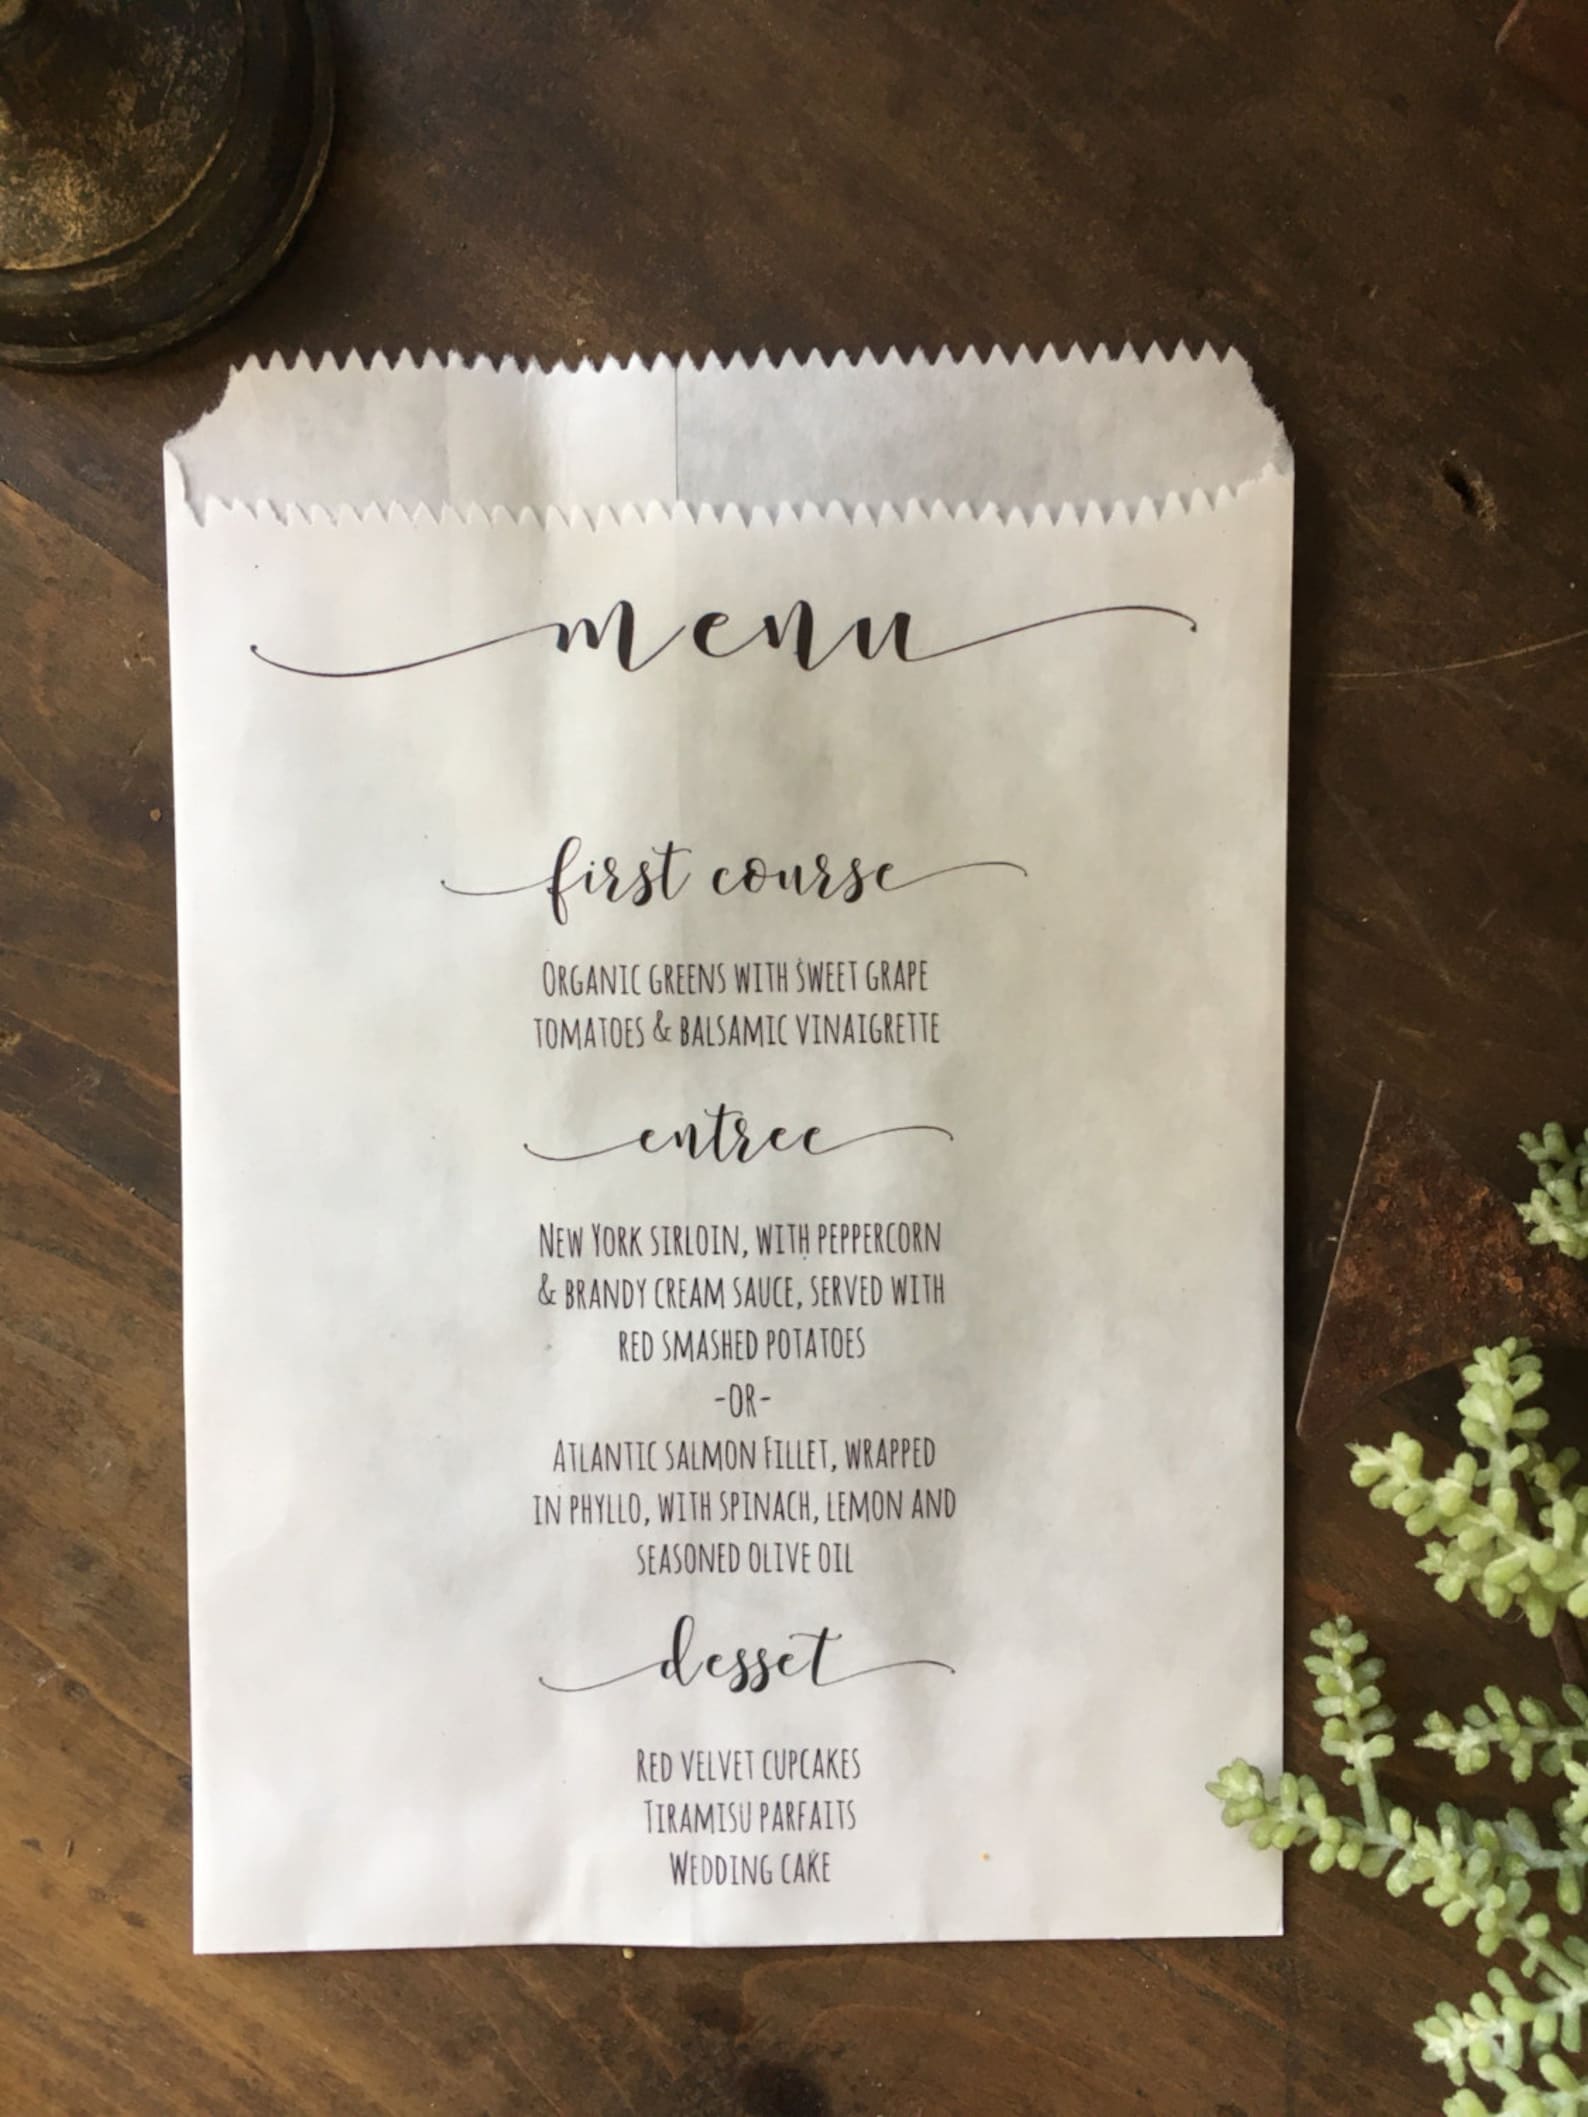 menu
first course
Organic greens with sweet grape
tomatoes & balsamic vinaigrette
entree
New York sirloin, with peppercorn
& brandy cream sauce, served with
red smashed potatoes
-or-
Atlantic salmon Fillet, wrapped
in phyllo, with spinach, lemon and
seasoned olive oil
desset
Red velvet cupcakes
Tiramisu parfaits
Wedding cake